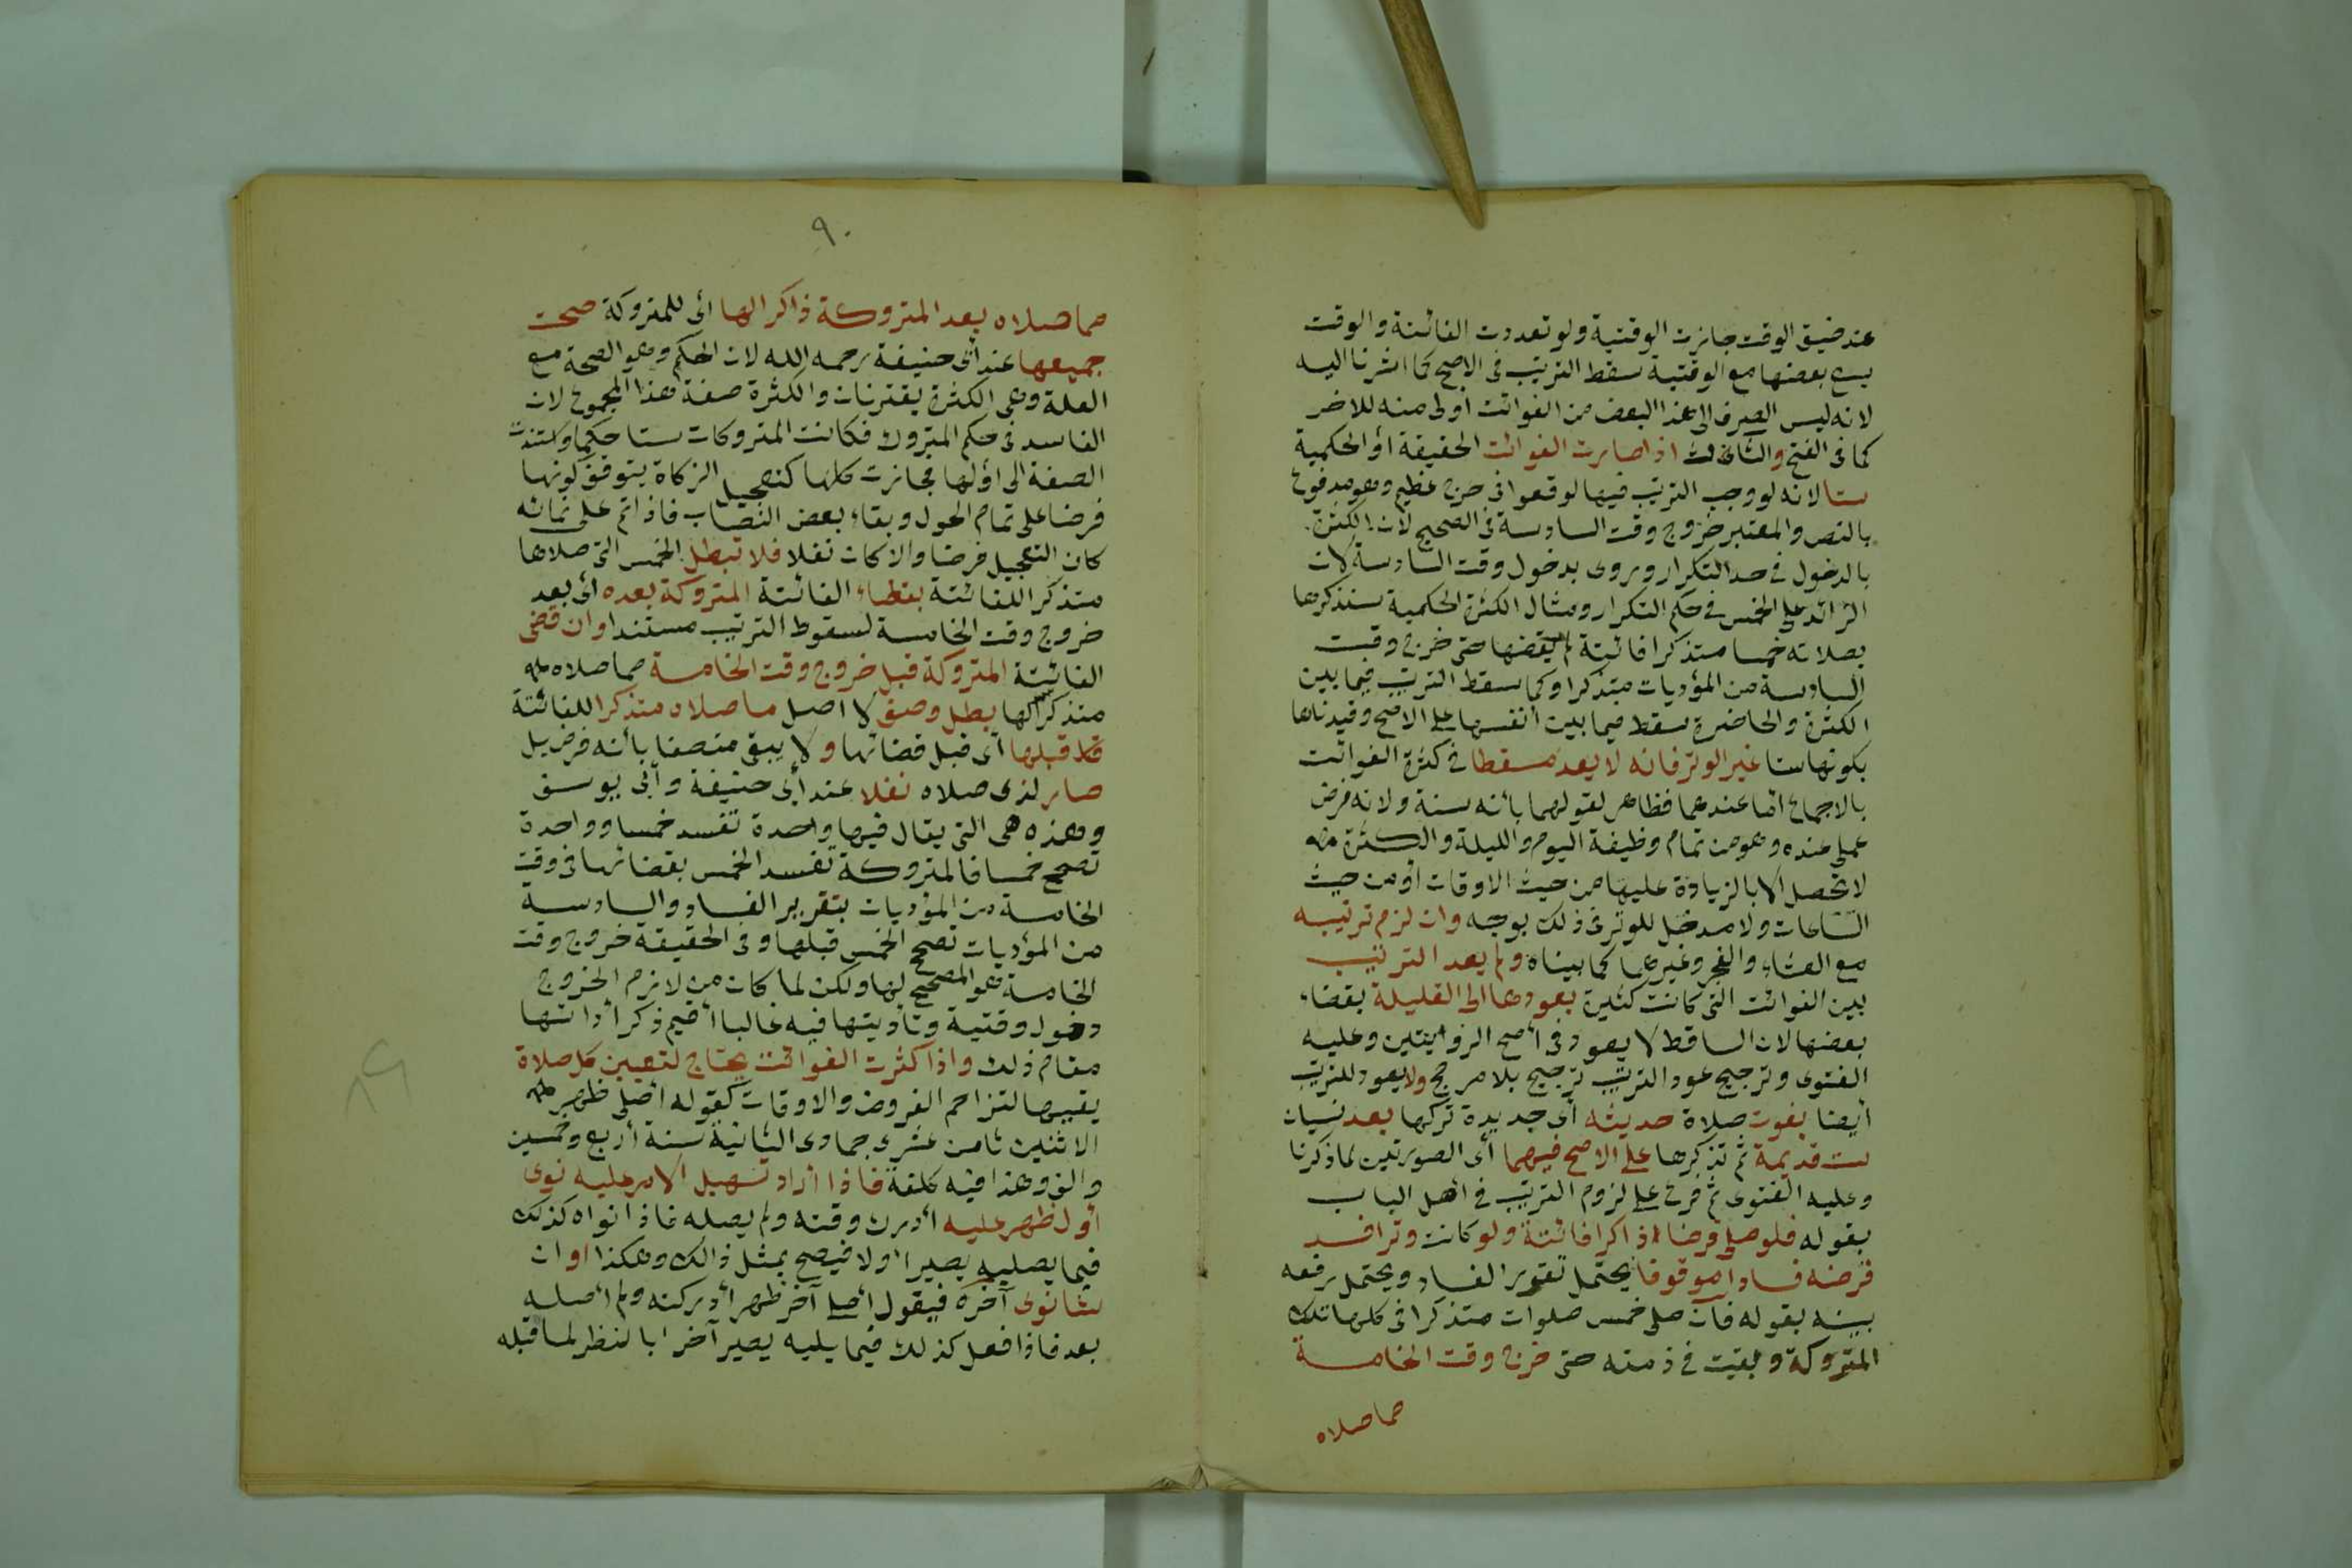 عند ضيق الوقت جازت الوقتية ولو تعددت الفائتة والوقت
يسع بعضها مع الوقتية سقط الترتيب فى الاصح كما اشرنا اليه
لانه ليس الصرف الى هذا البعض من الفوائت أولى منه للاخر
كما فى الفتح والثالث اذا صارت الفوائت الحقيقة أو الحكمية
ستا لانه لو وجب الترتيب فيها لوقعوا فى حرج عظيم وهو مدفوع
بالنص والمعتبر خروج وقت السادسة فى الصحيح لان الكثرة
بالدخول فى حد التكرار وروى بدخول وقت السادسة لان
الزائد على الخمس فى حكم التكرار ومثال الكثرة الحكمية سنذكرها
بصلاته خمسا متذكرا فائتة لم يقضها حتى خرج وقت
السادسة من المؤديات متذكرا وكما سقط الترتيب فيما بين
الكثرة والحاضرة سقط فيما بين أنفسها على الاصح وقيدناها
بكونها ستا غير الوتر فانه لا يعد مسقطا فى كثرة الفوائت
بالاجماع اما عندهما فظاهر لقولهما بأنه سنة ولانه فرض
عملى عنده وهو من تمام وظيفة اليوم والليلة والكثرة
لا تحصل الا بالزيادة عليها من حيث الاوقات أو من حيث
الساعات ولا مدخل للوتر فى ذلك بوجه وان لزم ترتيبه
مع العشاء والفجر وغيرهما كما بيناه ولم يعد الترتيب
بين الفوائت التى كانت كثيرة بعودها الى القليلة بقضاء
بعضها لان الساقط لا يعود فى أصح الروايتين وعليه
الفتوى وترجيح عود الترتيب ترجيح بلا مرجح ولا يعود للترتيب
أيضا بفوت صلاة حديثه أى جديدة تركها بعد نسيان
ست قديمة ثم تذكرها على الاصح فيهما أى الصورتين لما ذكرنا
وعليه الفتوى ثم فرع على لزوم الترتيب فى أصل الباب
بقوله فلو صلى فرضا ذاكرا فائتة ولو كانت وترا فسد
فرضه فسادا موقوفا يحتمل تقرر الفساد ويحتمل رفعه
بينه بقوله فان صلى خمس صلوات متذكرا فى كلها تلك
المتروكة وبقيت فى ذمته حتى خرج وقت الخامسة
مما صلاه
٩٠
مما صلاه بعد المتروكة ذاكرا لها أى للمتروكة صحت
جميعها عند أبى حنيفة رحمه الله لان الحكم وهو الصحة مع
العلة وهى الكثرة يقترنان والكثرة صفة هذا المجموع لان
الفاسد فى حكم المتروك فكانت المتروكات ستا حكما واستندت
الصفة الى أولها فجازت كلها كتعجيل الزكاة يتوقف كونها
فرضا على تمام الحول وبقاء بعض النصاب فاذا تم على نمائه
كان التعجيل فرضا والا كان نفلا فلا تبطل الخمس التى صلاها
متذكرا للفائتة بقضاء الفائتة المتروكة بعده أى بعد
خروج وقت الخامسة لسقوط الترتيب مستندا وان قضى
الفائتة المتروكة قبل خروج وقت الخامسة مما صلاه
متذكرا لها بطل وصف لا اصل ما صلاه متذكرا للفائتة
قبلها أى قبل قضائها ولا يبقى متصفا بأنه فرض بل
صار لذى صلاه نفلا عند أبى حنيفة وأبى يوسف
وهذه هى التى يقال فيها واحدة تفسد خمسا وواحدة
تصحح خمسا فالمتروكة تفسد الخمس بقضائها فى وقت
الخامسة من المؤديات بتقرير الفساد والسادسة
من المؤديات تصحح الخمس قبلها وفى الحقيقة خروج وقت
الخامسة هو المصحح لها ولكن لما كان من لازم الخروج
دخول وقتية وتأديتها فيه غالبا أقيم ذكر أدائها
مقام ذلك واذا كثرت الفوائت يحتاج لتعيين كل صلاة
يقضيها لتزاحم الفروض والاوقات كقوله أصلى ظهر
الاثنين ثامن عشرى جمادى الثانية سنة أربع وخمسين
والف وهذا فيه كلفة فاذا أراد تسهيل الامر عليه نوى
أول ظهر عليه أدرك وقته ولم يصله فاذا نواه كذلك
فيما يصليه يصير اولا فيصح بمثل ذالك وهكذا او ان
شاء نوى آخره فيقول أصلى آخر ظهر أدركته ولم أصله
بعد فاذا فعل كذلك فيما يليه يصير آخرا بالنظر لما قبله